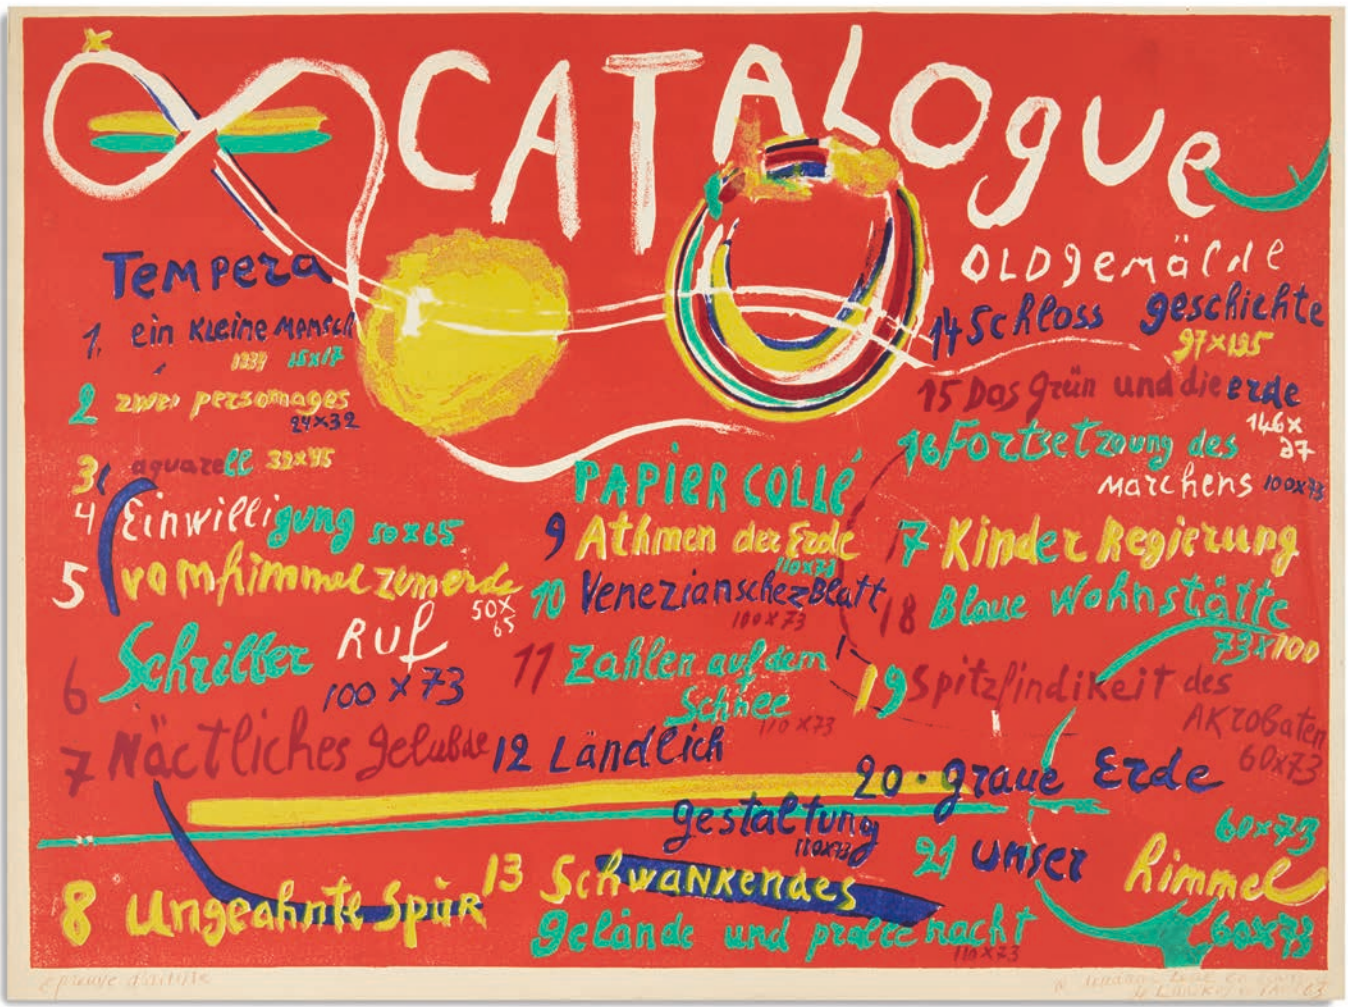 CATALOGUE
Tempera
1. ein Kleine Mensch
1239 25x17
2 zwei personages
24x32
3 aquarell 32x45
4 Einwilligung 50x65
5 vom himmel zum erde
50x
65
6 Schriller Ruf
100 x 73
7 Näctliches gelubde
8 Ungeahnte Spur
PAPIER COLLÉ
9 Athmen der Erde
110x73
10 Venezianschez Blatt
100x73
11 Zahlen auf dem
Schnee
110x73
12 Ländlich
gestaltung
110x73
13 Schwankendes
gelände und pralle nacht
110x73
OLDgemälde
14 Schloss geschichte
97x195
15 Das Grün und die erde
146x
97
16 Fortsetzoung des
Marchens 100x73
17 Kinder Regierung
18 Blaue Wohnstätte
73x100
19 Spitzfindikeit des
AKrobaten
60x73
20 · graue Erde
60x73
21 unser himmel
60x73
épreuve d'artiste
63